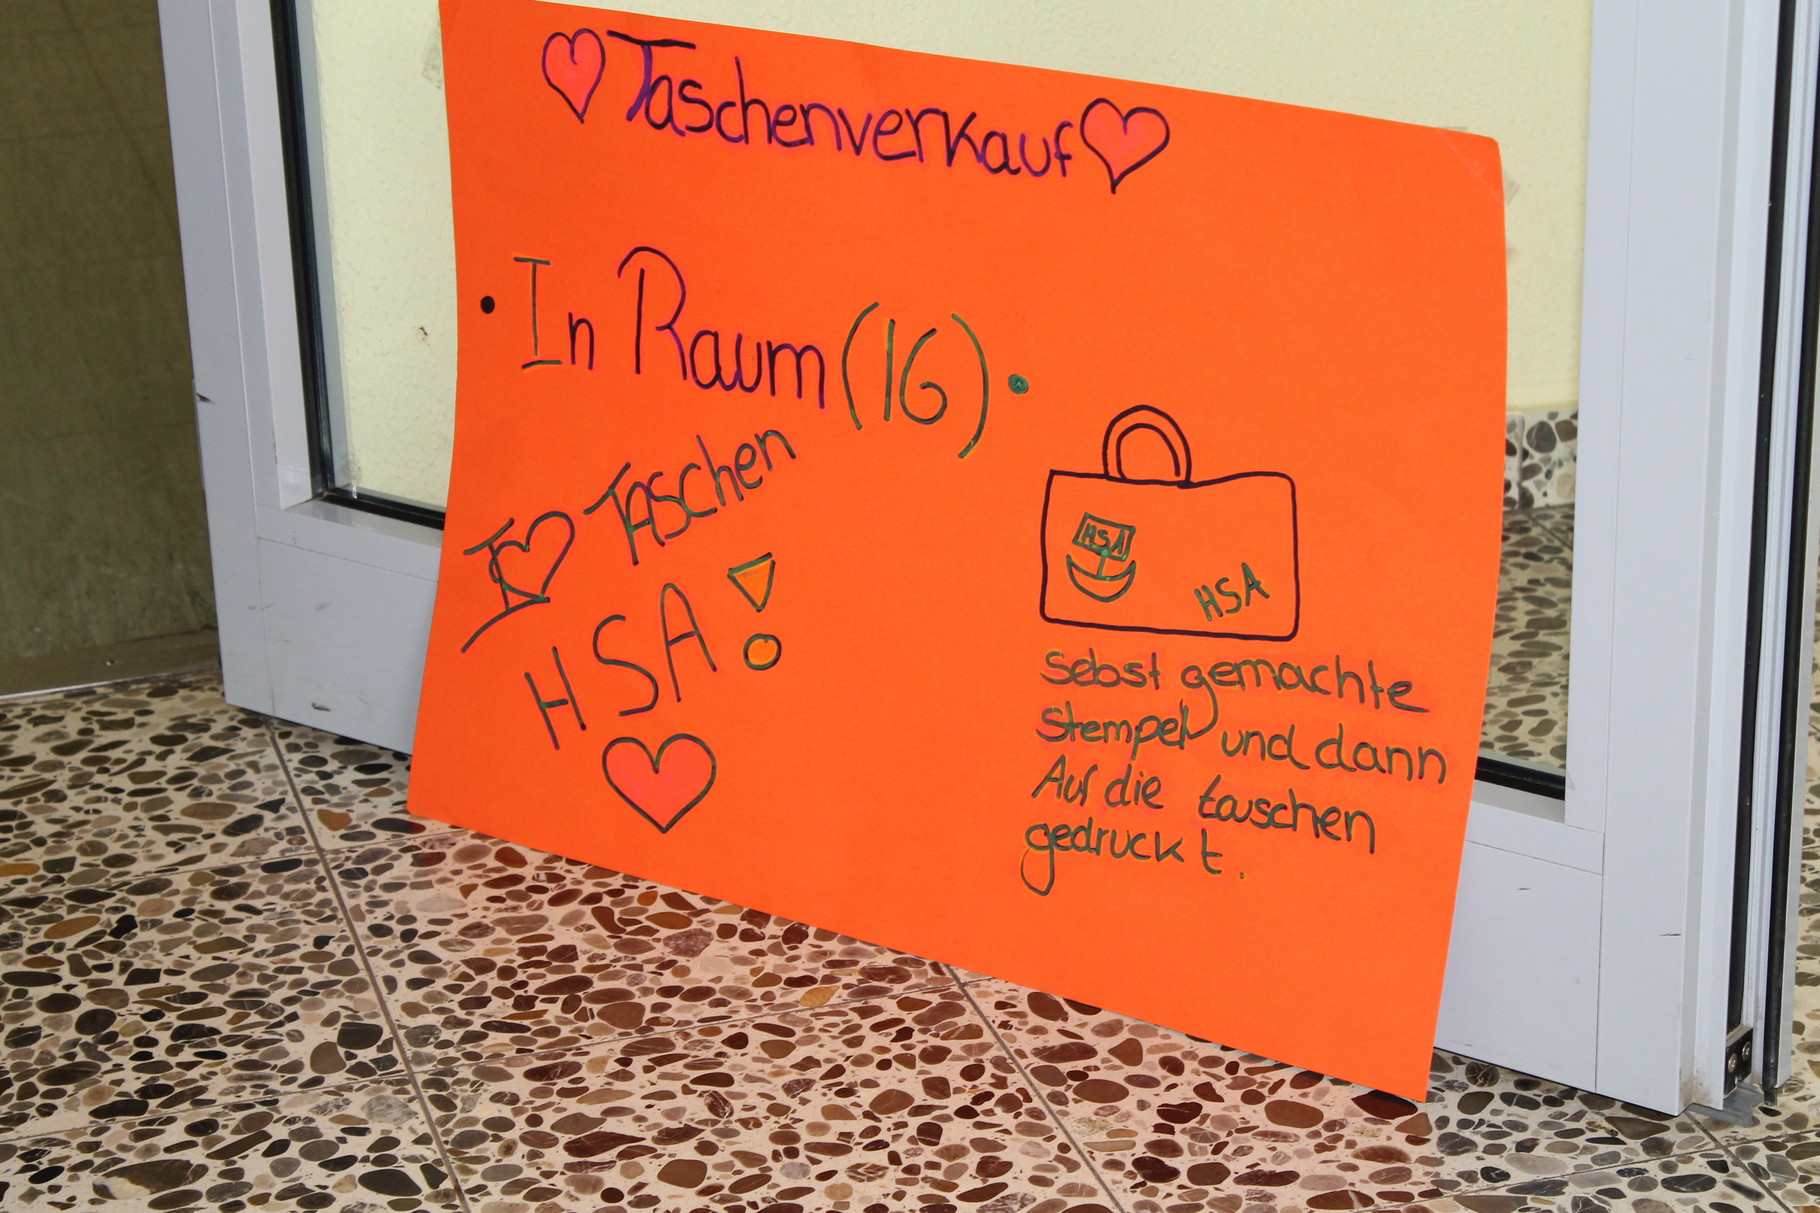 Taschenverkauf
In Raum (16)
I Taschen
HSA!
HSA
HSA
Sebst gemachte
Stempel und dann
Auf die taschen
gedruckt.